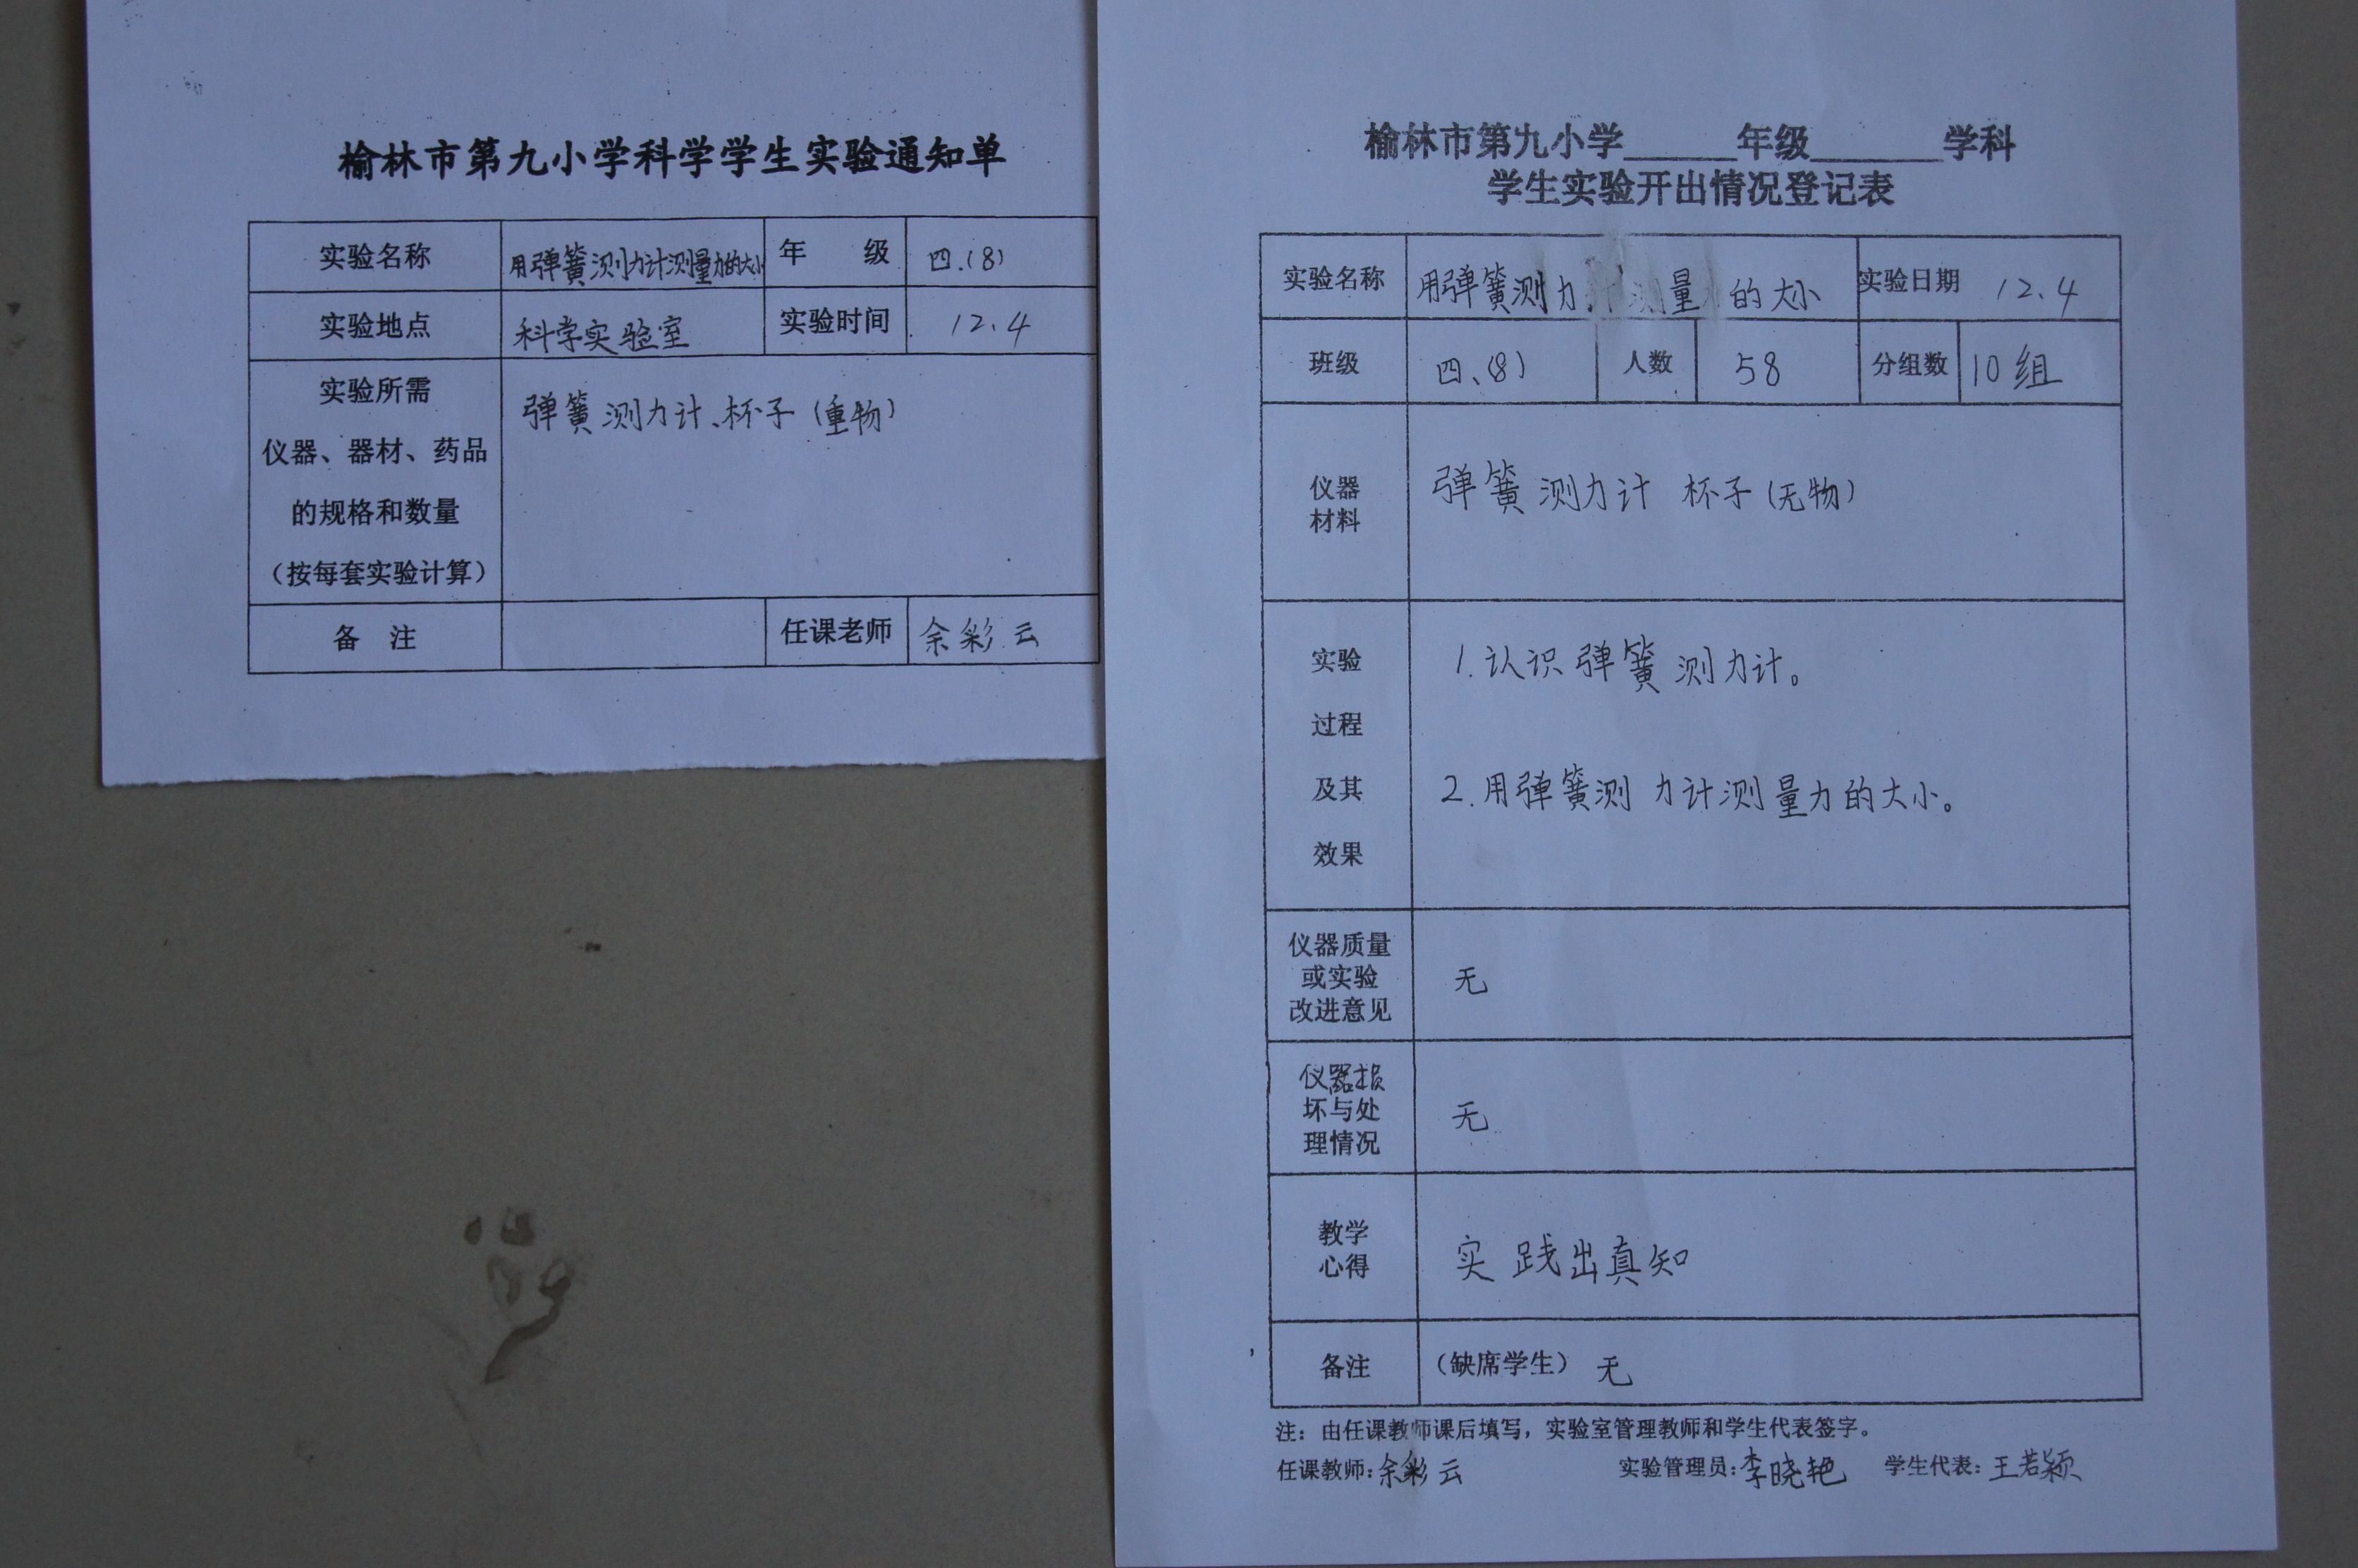 榆林市第九小学科学学生实验通知单
实验名称 用弹簧测力计测量力的大小 年 级 四.(8)
实验地点 科学实验室 实验时间 12.4
实验所需
仪器、器材、药品
的规格和数量
(按每套实验计算)
弹簧测力计、杯子(重物)
备 注 任课老师 余彩云
榆林市第九小学______年级_______学科
学生实验开出情况登记表
实验名称 用弹簧测力计测量 的大小 实验日期 12.4
班级 四、(8) 人数 58 分组数 10组
仪器
材料
弹簧测力计 杯子(无物)
实验
过程
及其
效果
1.认识弹簧测力计。
2.用弹簧测力计测量力的大小。
仪器质量
或实验
改进意见
无
仪器损
坏与处
理情况
无
教学
心得
实践出真知
备注 (缺席学生) 无
注：由任课教师课后填写，实验室管理教师和学生代表签字。
任课教师:余彩云 实验管理员:李晓艳 学生代表:王若颖